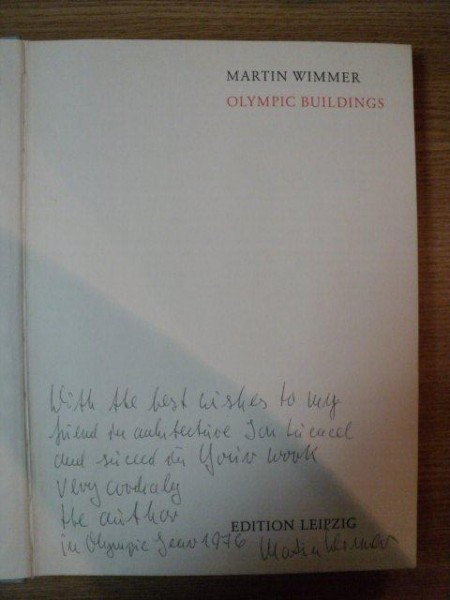 MARTIN WIMMER
OLYMPIC BUILDINGS
With the best wishes to my
friend in architecture Ion
and succed in Your work
very cordialy
the author
in Olympic Year 1976 Martin Wimmer
EDITION LEIPZIG